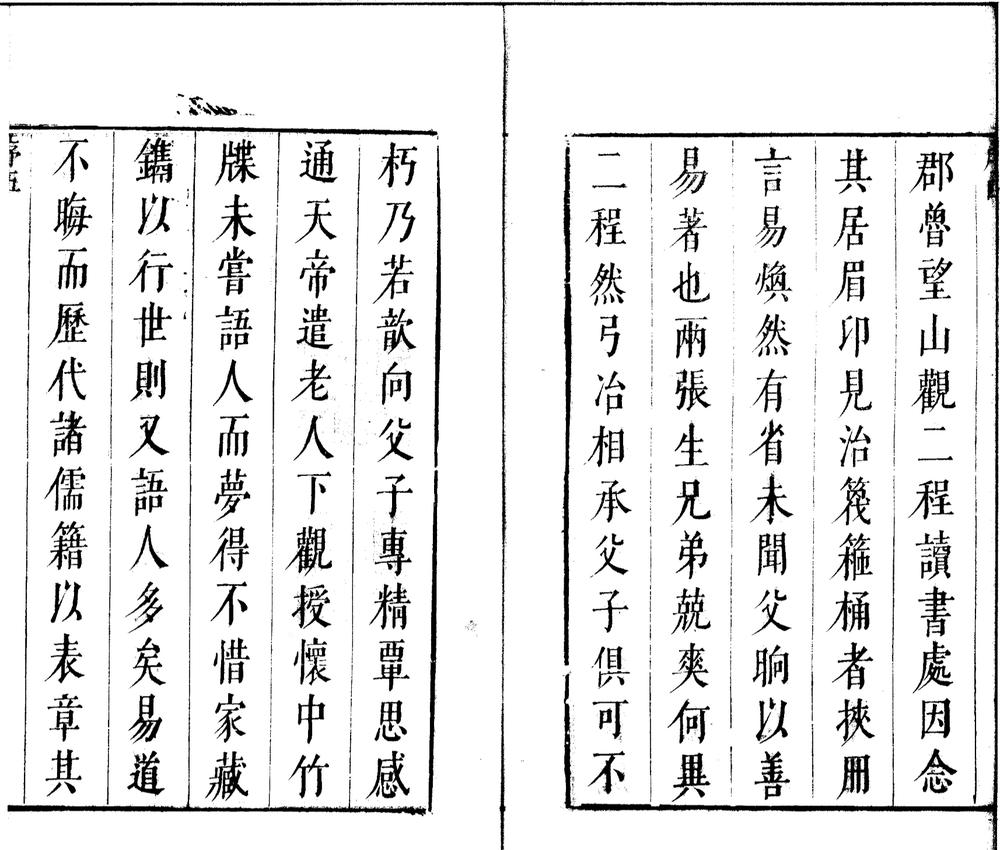 郡魯望山觀二程讀書處因念
其居眉卬見治篾箍桶者挾冊
言易煥然有省未聞父晌以善
易著也兩張生兄弟兢爽何異
二程然弓冶相承父子俱可不
朽乃若歆向父子專精覃思感
通天帝遣老人下觀授懷中竹
牒未嘗語人而夢得不惜家藏
鐫以行世則又語人多矣易道
不晦而歷代諸儒籍以表章其
序五